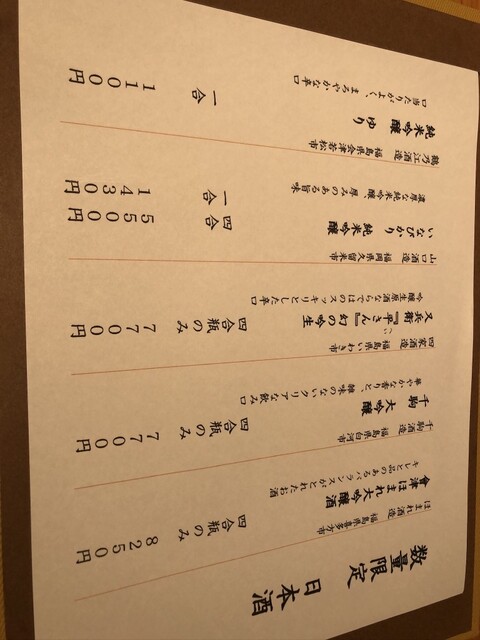 数量限定 日本酒
ほまれ酒造 福島県喜多方市
會津ほまれ 大吟醸酒
キレと品のあるバランスがとれたお酒
四合瓶のみ 8250円
千駒酒造 福島県白河市
千駒 大吟醸
華やかな香りと、雑味のないクリアな飲み口
四合瓶のみ 7700円
四家酒造 福島県いわき市
又兵衛『平さん』幻の吟生
吟醸生原酒ならではのスッキリとした辛口
四合瓶のみ 7700円
山口酒造 福岡県久留米市
いなびかり 純米吟醸
四合 5500円
濃厚な純米吟醸、厚みのある旨味
一合 1340円
鶴乃江酒造 福島県会津若松市
純米吟醸 ゆり
口当たりがよく、まろやかな辛口
一合 1100円